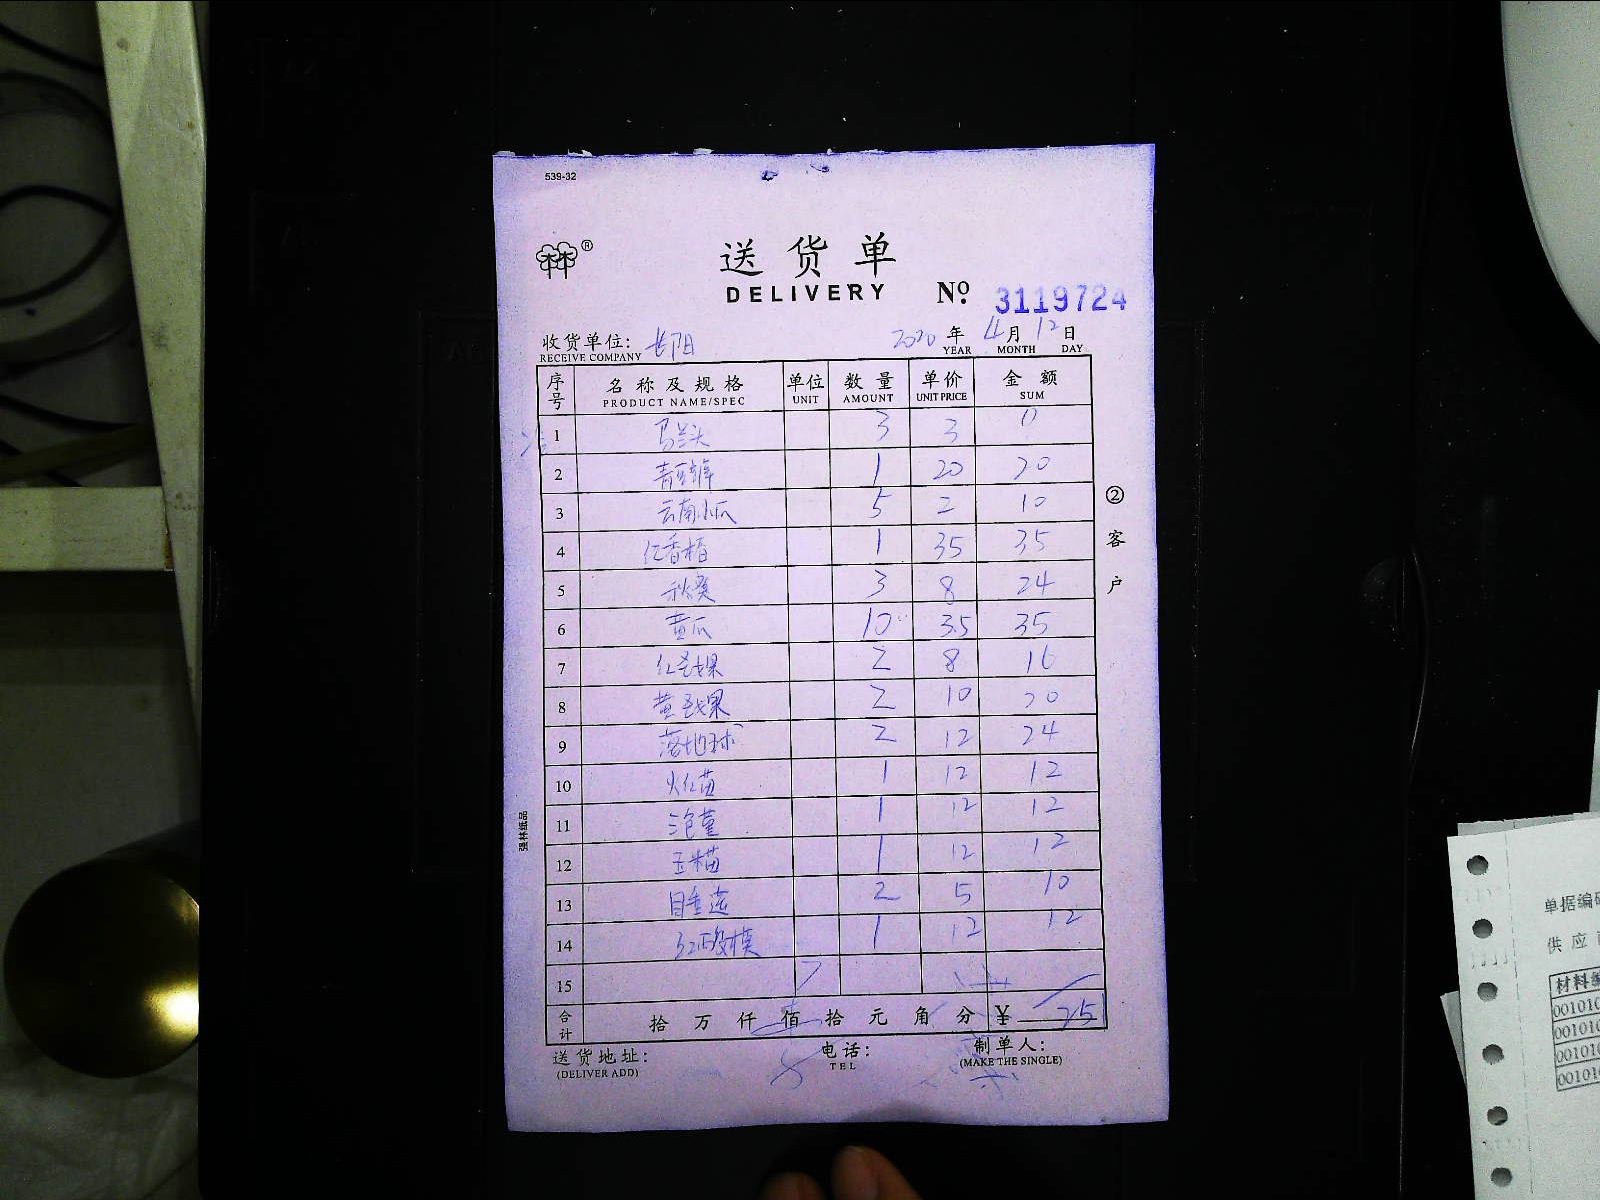 539-32
®
送货单
DELIVERY
No. 3119724
收货单位: 长阳
RECEIVE COMPANY
2020 年 4 月 12 日
YEAR MONTH DAY
序号 名称及规格 单位 数量 单价 金额
PRODUCT NAME/SPEC UNIT AMOUNT UNIT PRICE SUM
1 马兰头 3 3
2 20 20
3 云南小瓜 5 2 10
4 红香椿 1 35 35
5 秋葵 3 8 24
6 黄瓜 10 3.5 35
7 2 8 16
8 2 10 20
9 落地球 2 12 24
10 火红苗 1 12 12
11 1 12 12
12 玉米苗 1 12 12
13 2 5 10
14 1 12 12
15
合计 拾 万 仟 佰 拾 元 角 分 ¥ 251
送货地址: 电话: 制单人:
(DELIVER ADD) TEL (MAKE THE SINGLE)
②客户
强林纸品
单据编
供应
材料